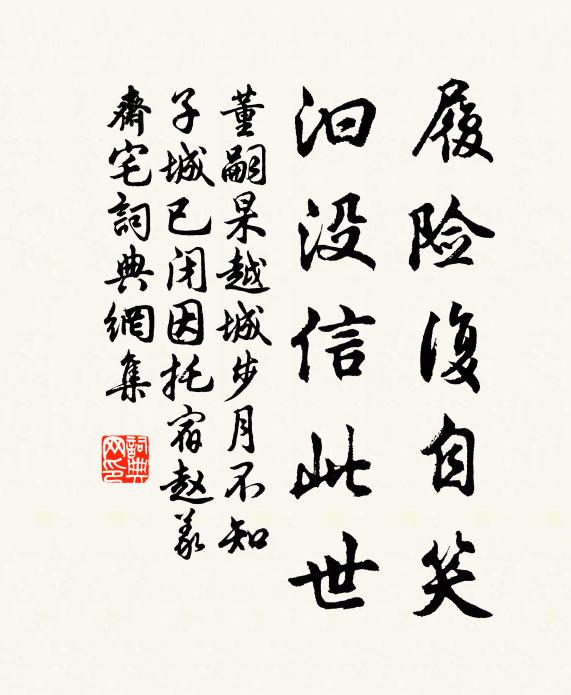 履险復自笑
汩没信此世
董嗣杲越城步月不知
子城已闭因托宿赵羲
齋宅詞典網集
詞典
网印